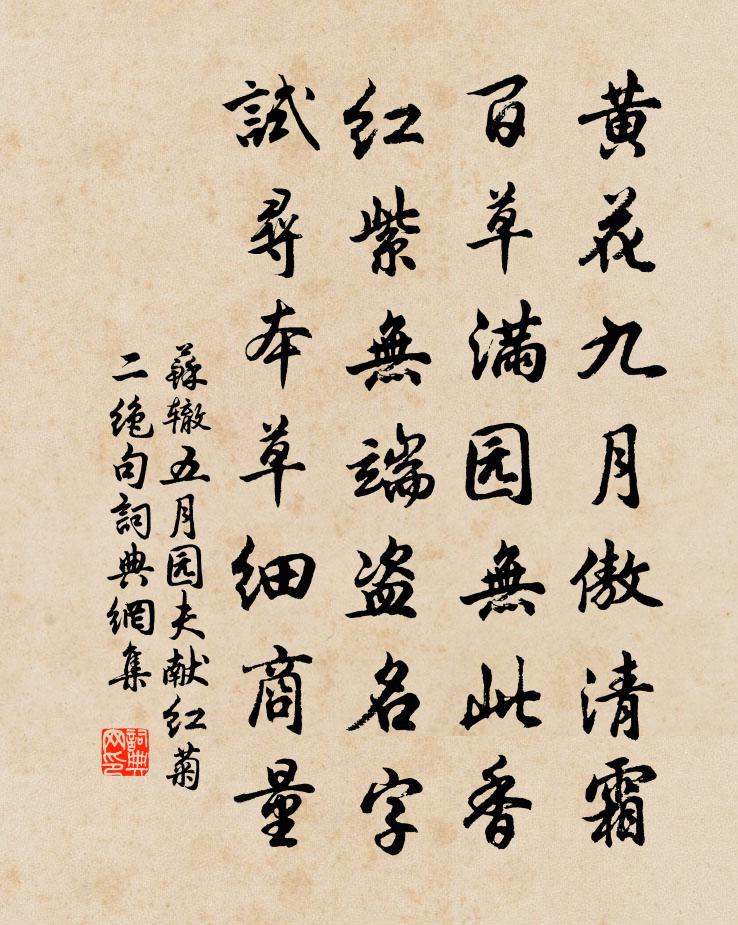 黄花九月傲清霜
百草满园無此香
紅紫無端盗名字
試尋本草细商量
蘇辙五月园夫献红菊
二绝句詞典網集
詞典
网印